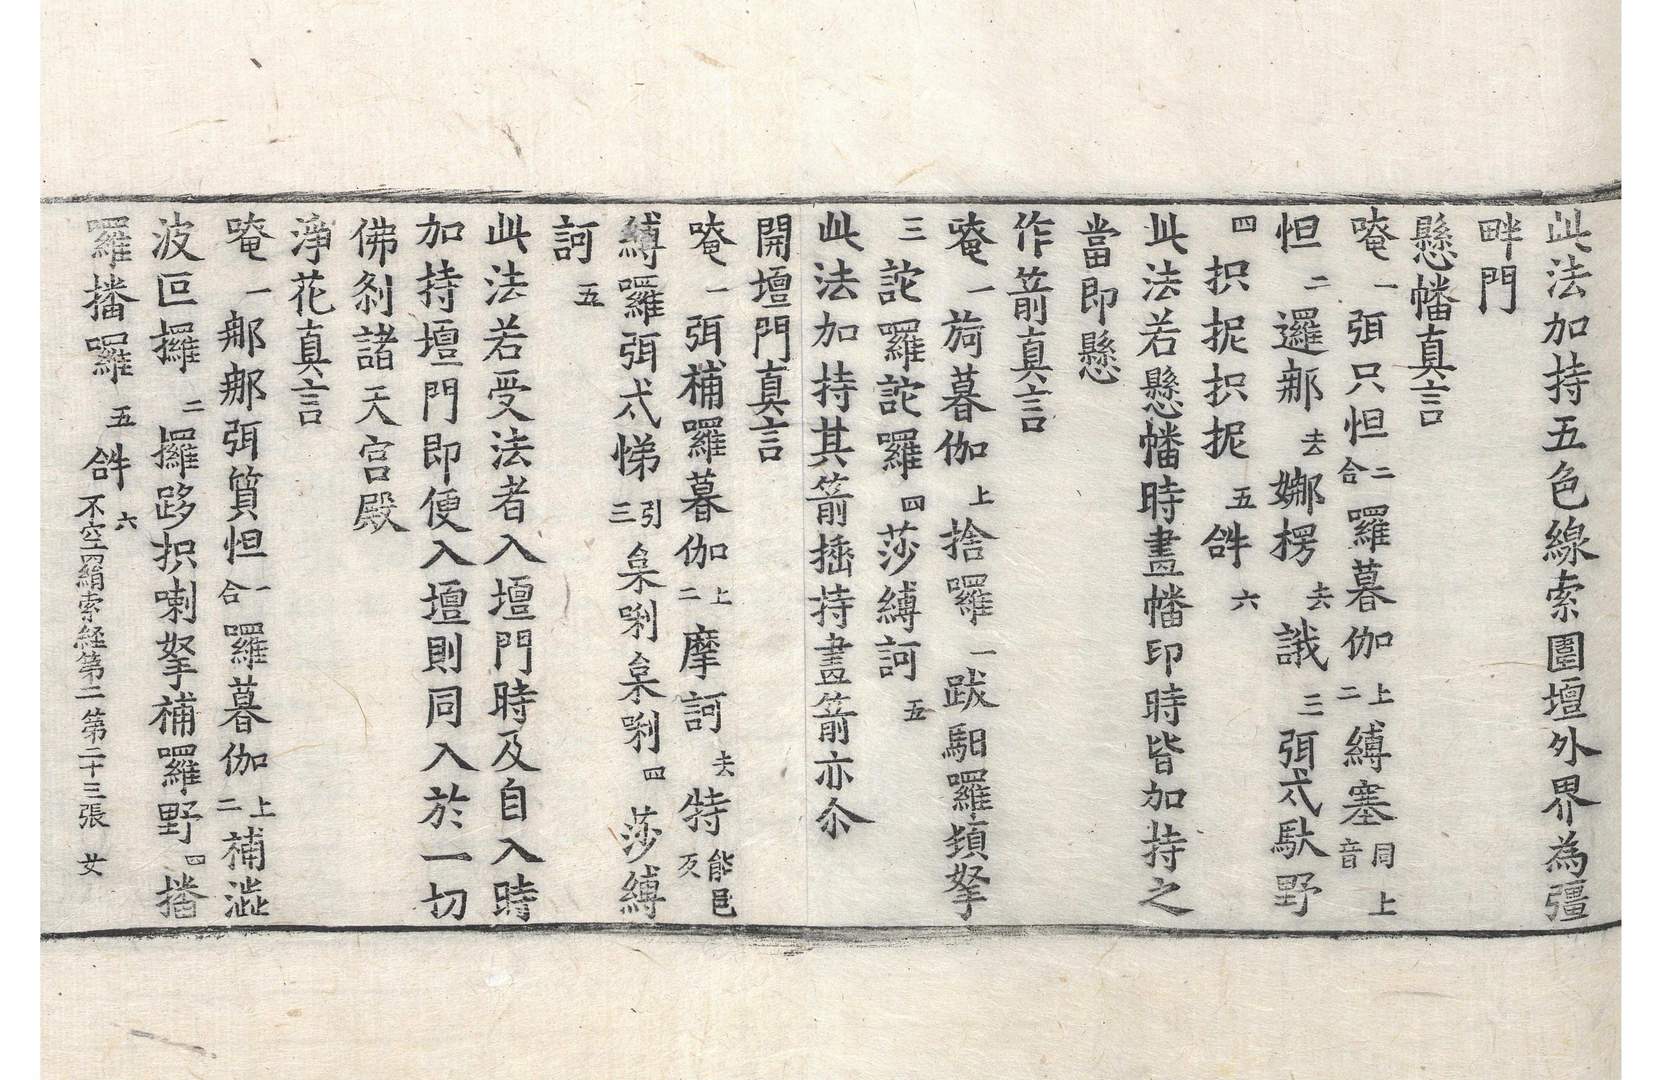 此法加持五色線索圍壇外界為彊
畔門
懸幡真言
唵一弭只怛二合羅暮伽上二縛塞同音上
怛二邏那去娜楞去誐三弭忒馱野
四抧抳抧抳五𤙖六
此法若懸幡時畫幡印時皆加持之
當即懸
作箭真言
唵一旖暮伽上捨囉一跋馹羅頞拏
三詑囉詑囉四莎縛訶五
此法加持其箭插持畫箭亦尒
開壇門真言
唵一弭補羅暮伽上二摩訶去特能邑反
縛囉弭忒悌引三枲唎枲唎四莎縛
訶五
此法若受法者入壇門時及自入時
加持壇門即便入壇則同入於一切
佛剎諸天宮殿
淨花真言
唵一那那弭質怛一合羅暮伽上二補澁
波叵攞二攞跢抧喇拏補羅野四播
羅播囉五𤙖六不空罥索経第二 第二十三張 女